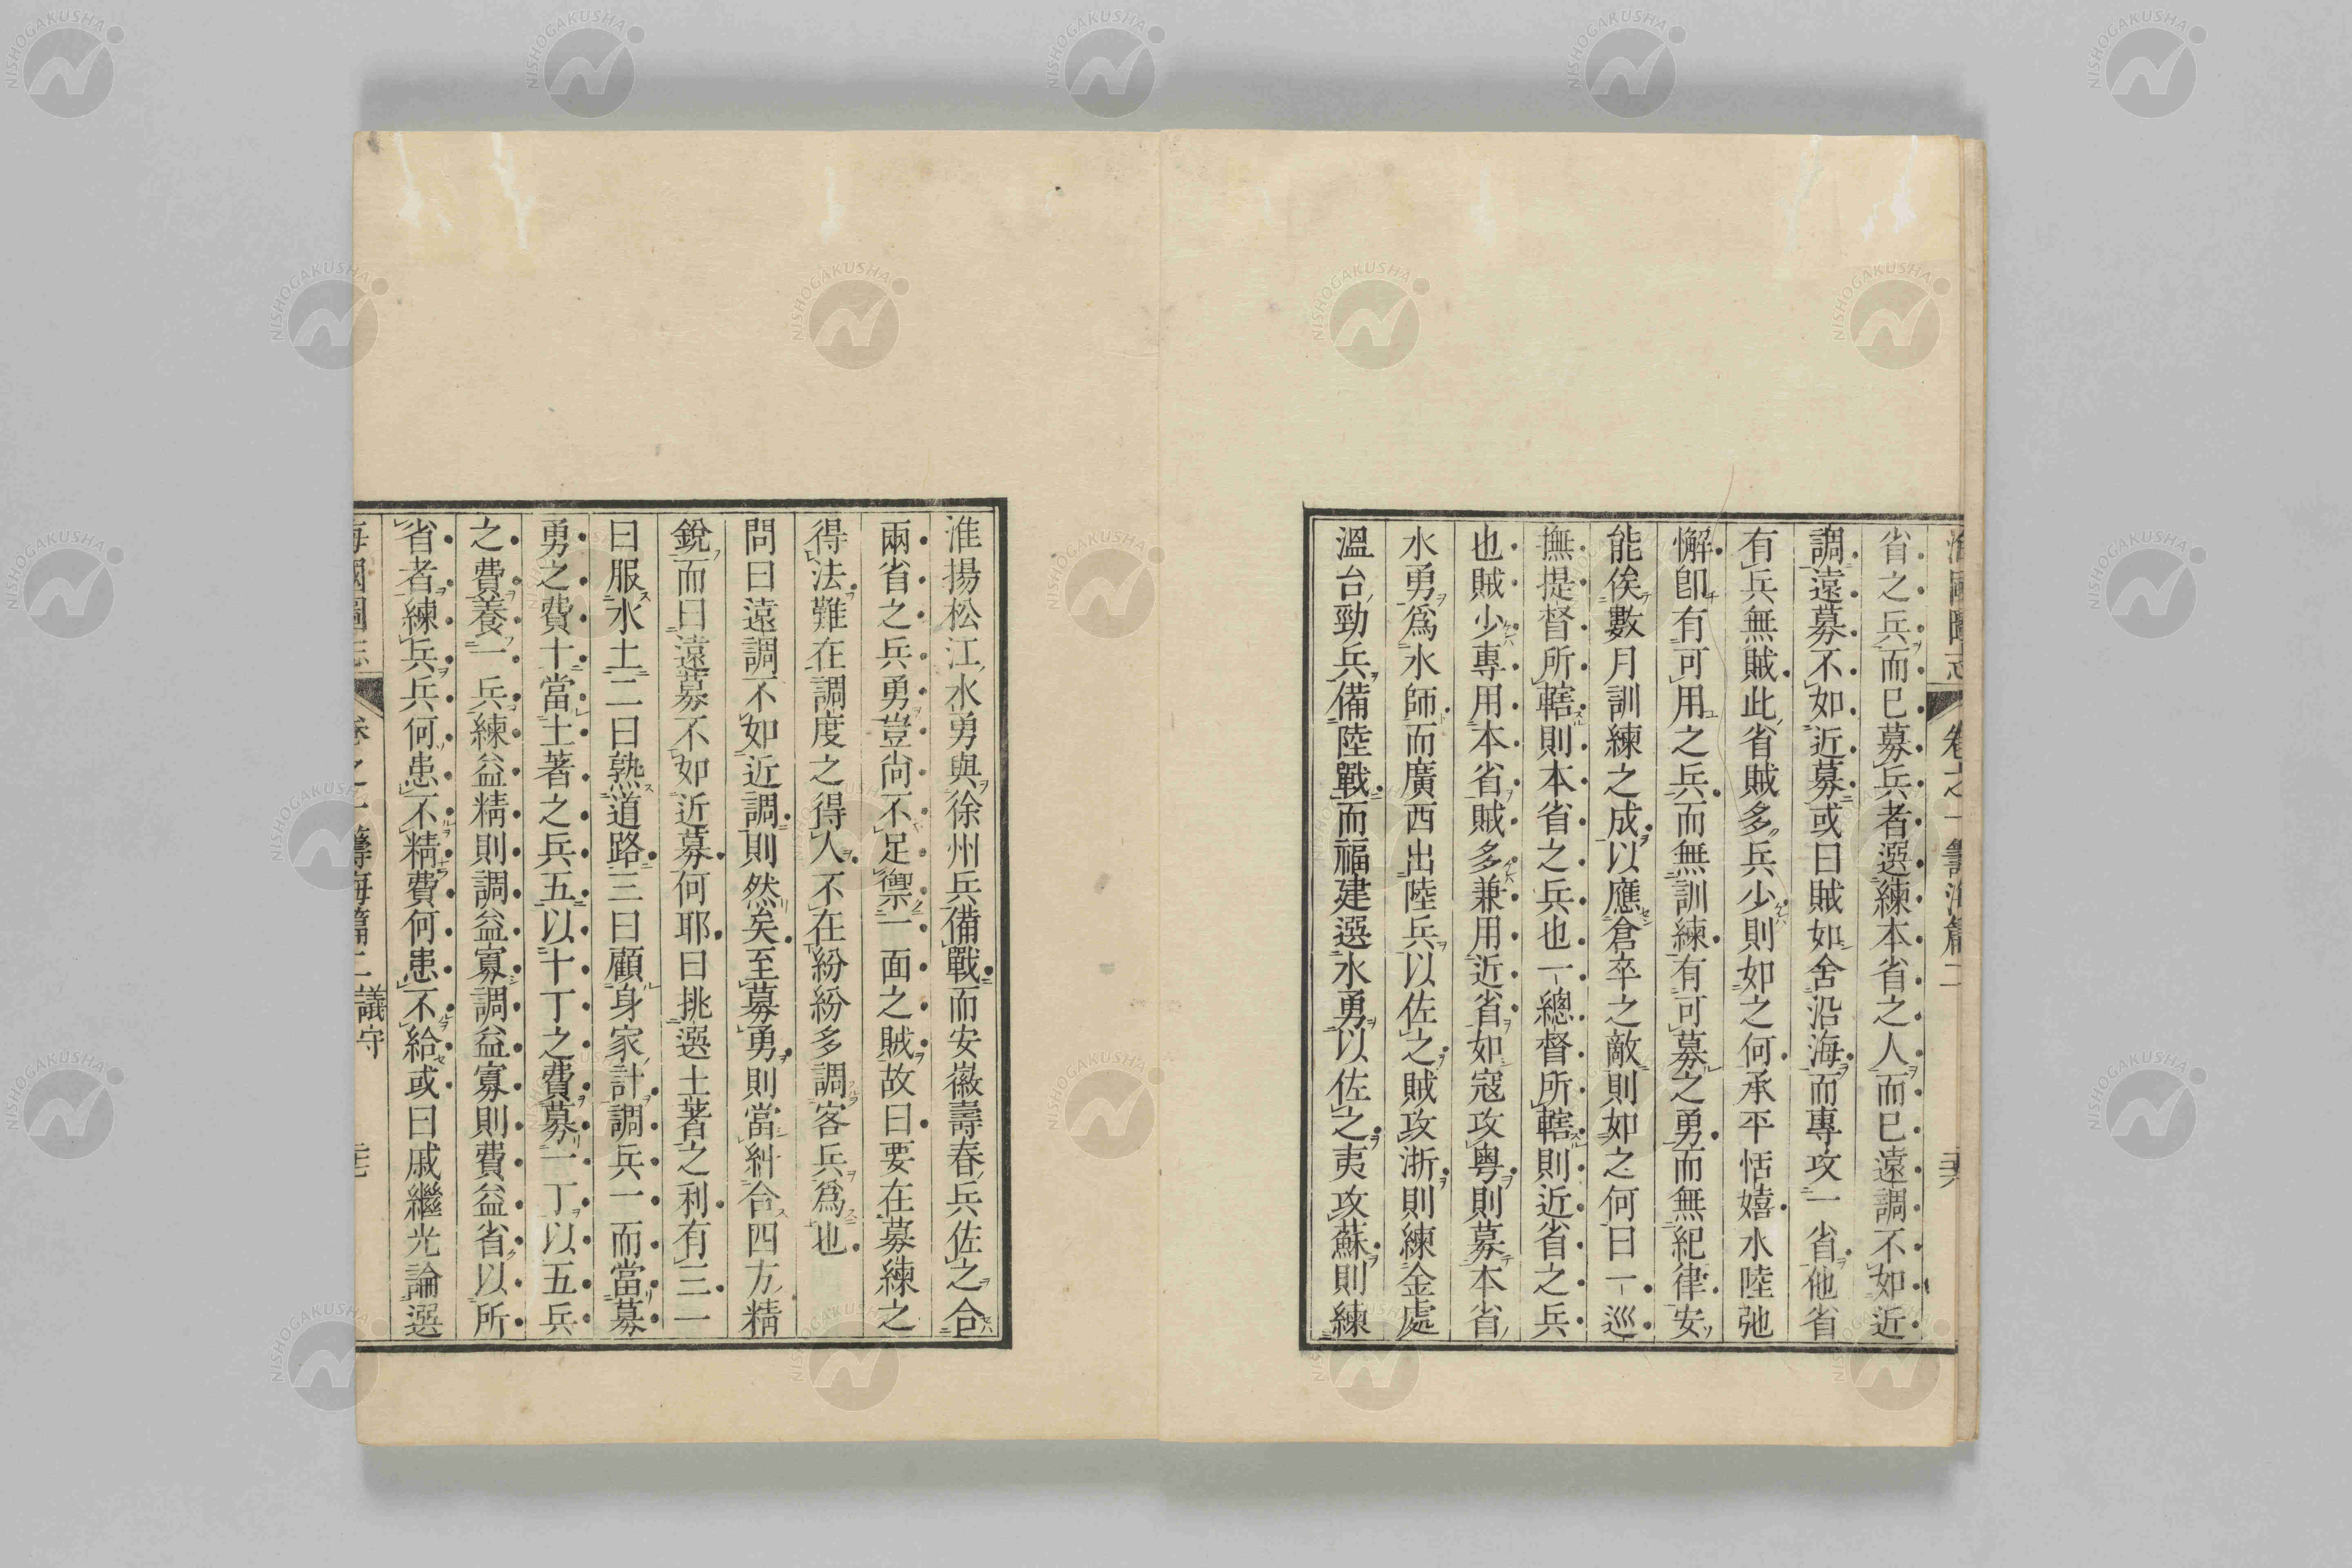 省之兵而已募兵者選練本省之人而已遠調不如近
調遠募不如近募或曰賊如舍沿海而專攻一省他省
有兵無賊此省賊多兵少則如之何承平恬嬉水陸弛
懈卽有可用之兵而無訓練有可募之勇而無紀律安
能俟數月訓練之成以應倉卒之敵則如之何曰一巡
撫提督所轄則本省之兵也一總督所轄則近省之兵
也賊少專用本省賊多兼用近省如寇攻粤則募本省
水勇爲水師而廣西出陸兵以佐之賊攻浙則練金處
溫台勁兵備陸戰而福建選水勇以佐之夷攻蘇則練
淮揚松江水勇與徐州兵備戰而安徽壽春兵佐之合
兩省之兵勇豈尙不足禦一面之賊故曰要在募練之
得法難在調度之得人不在紛紛多調客兵爲也
問曰遠調不如近調則然矣至募勇則當糾合四方精
銳而曰遠募不如近募何耶曰挑選土著之利有三一
曰服水土二曰熟道路三曰顧身家計調兵一而當募
勇之費十當土著之兵五以十丁之費募一丁以五兵
之費養一兵練益精則調益寡調益寡則費益省以所
省者練兵兵何患不精費何患不給或曰戚繼光論選
海國圖志 卷之一籌海篇二議守
NISHOGAKUSHA